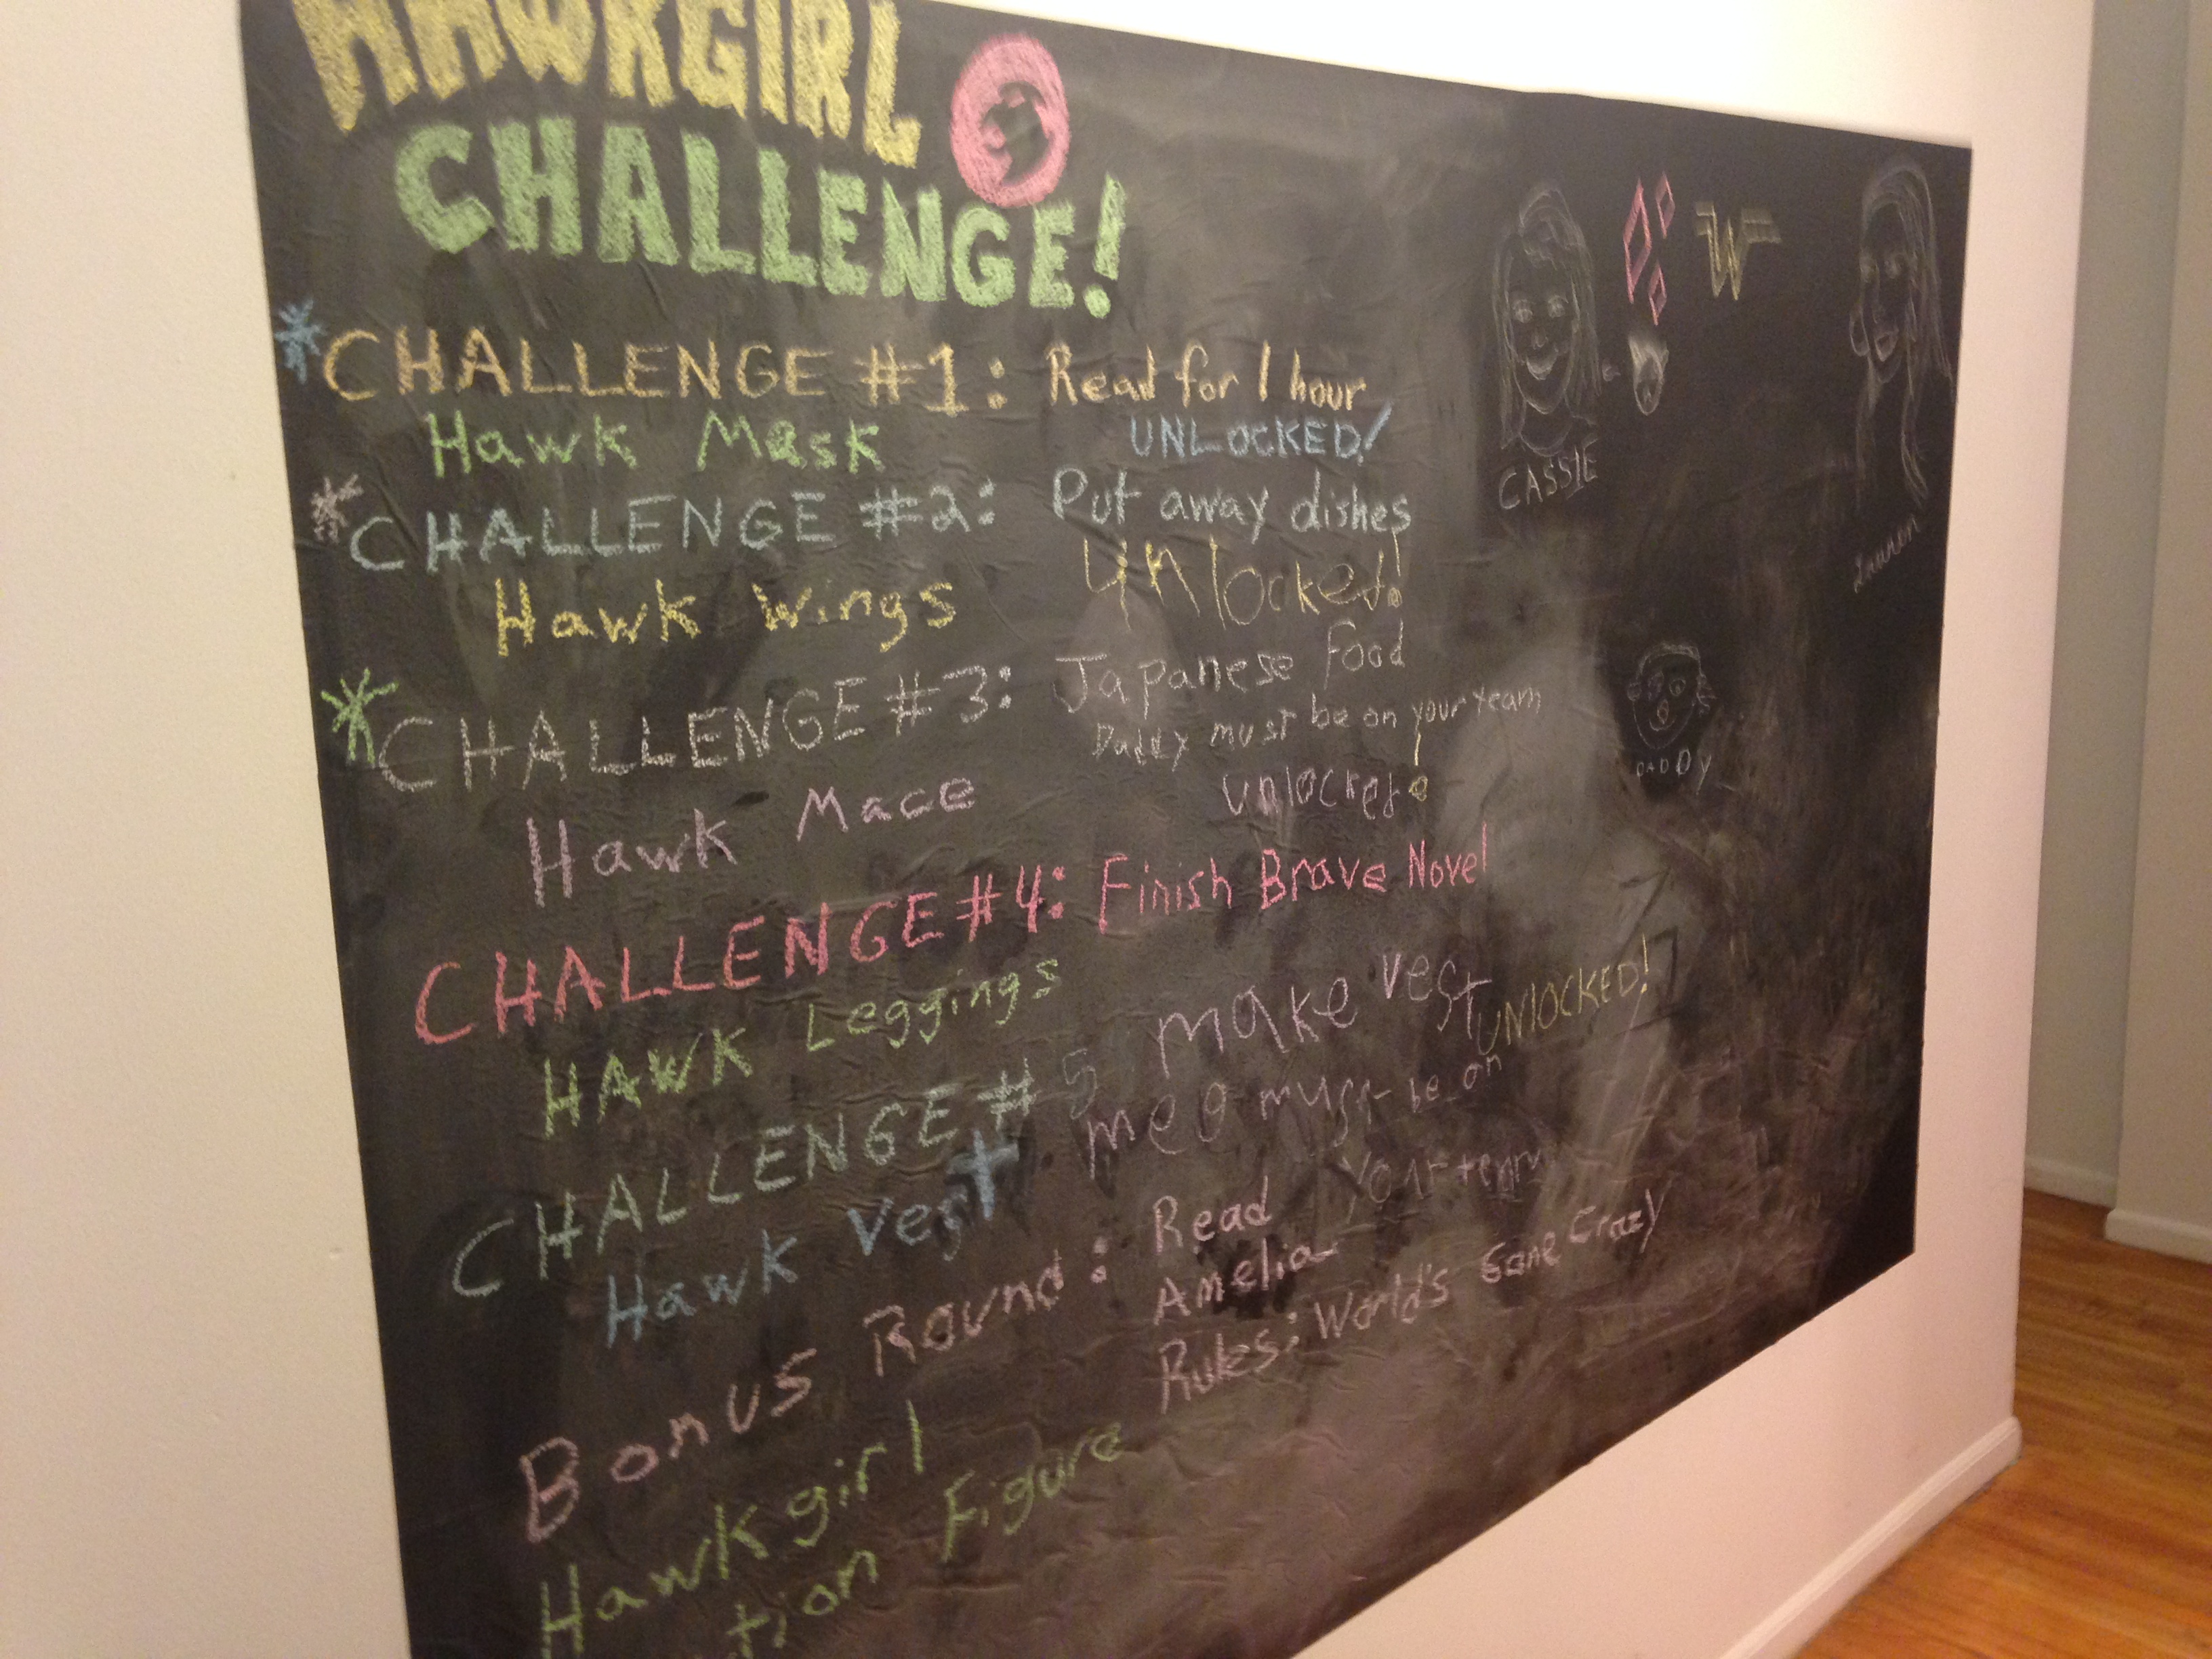 HAWKGIRL
CHALLENGE!
*CHALLENGE #1: Read for 1 hour
Hawk Mask UNLOCKED!
*CHALLENGE #2: Put away dishes
Hawk Wings Unlocked!
*CHALLENGE #3: Japanese Food
Daddy must be on your team
Hawk Mace unlocked!
CHALLENGE #4: Finish Brave Novel
HAWK Leggings
CHALLENGE #5 make vest
UNLOCKED!
Hawk Vest meg must be on
your team
Bonus Round: Read
Amelia
Rules: World's Sane Crazy
Hawkgirl
tion Figure
W
CASSIE
Lauren
DADDY